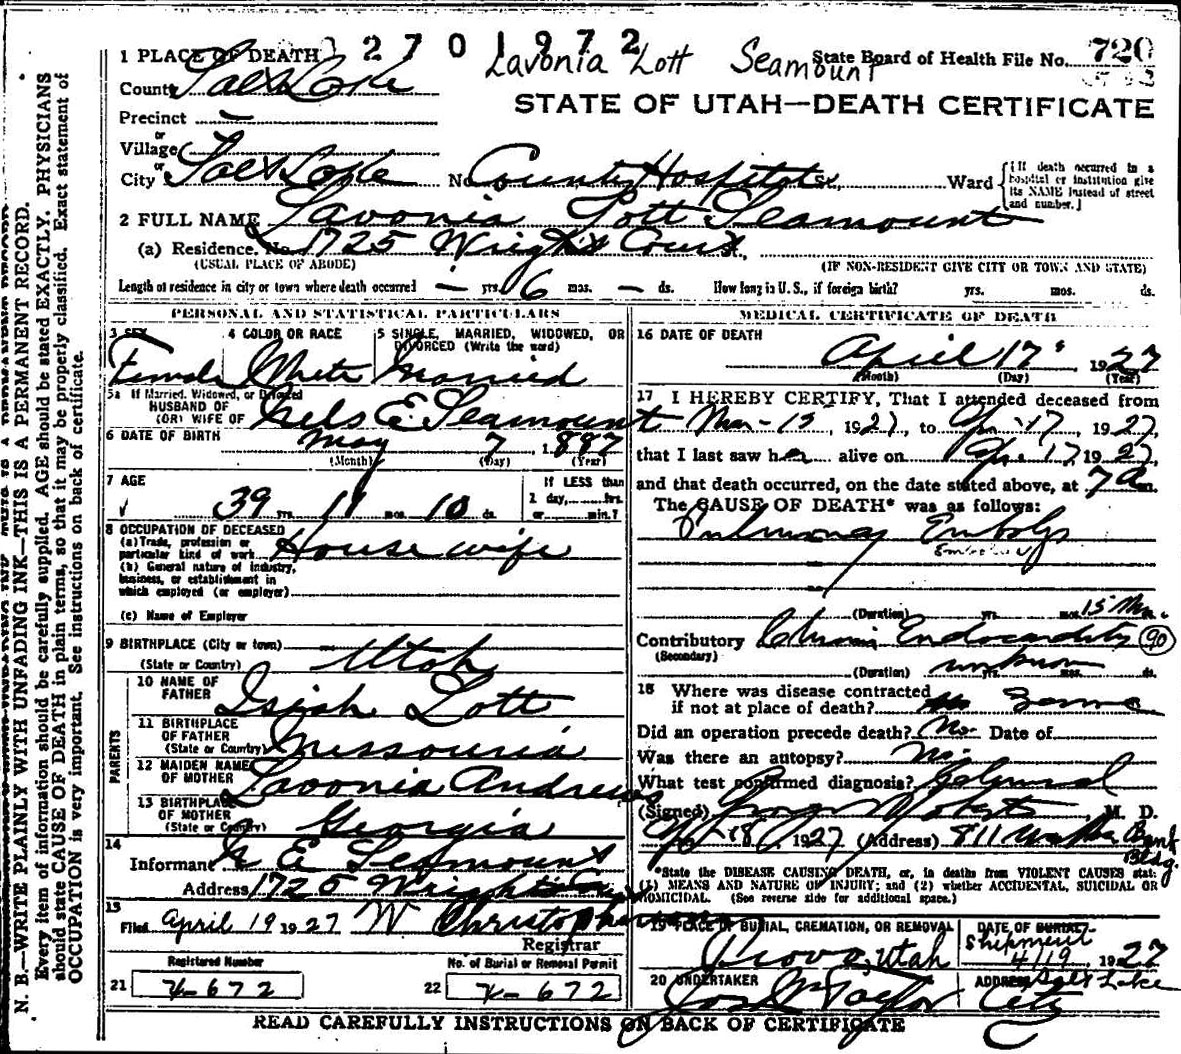 N. B.—WRITE PLAINLY WITH UNFADING INK—THIS IS A PERMANENT RECORD.
Every item of information should be carefully supplied. AGE should be stated EXACTLY. PHYSICIANS
should state CAUSE OF DEATH in plain terms, so that it may be properly classified. Exact statement of
OCCUPATION is very important. See instructions on back of certificate.
2701972
Lavonia Lott Seamount
State Board of Health File No. 720
STATE OF UTAH—DEATH CERTIFICATE
1 PLACE OF DEATH
County Salt Lake
Precinct —
or
Village
or
City Salt Lake No. County Hospital St., Ward
(If death occurred in a
hospital or institution give
its NAME instead of street
and number.)
2 FULL NAME Lavonia Lott Seamount
(a) Residence. No. 1725 Wrights Court
(USUAL PLACE OF ABODE) (IF NON-RESIDENT GIVE CITY OR TOWN AND STATE)
Length of residence in city or town where death occurred — yrs. 6 mos. — ds. How long in U. S., if foreign birth? yrs. mos. ds.
PERSONAL AND STATISTICAL PARTICULARS
3 SEX
Female
4 COLOR OR RACE
White
5 SINGLE, MARRIED, WIDOWED, OR
DIVORCED (Write the word)
Married
5a If Married, Widowed, or Divorced
HUSBAND OF
(OR) WIFE OF Nels E Seamount
6 DATE OF BIRTH May 7 1887
(Month) (Day) (Year)
7 AGE
39 yrs. 11 mos. 10 ds.
If LESS than
1 day, hrs.
or min.?
8 OCCUPATION OF DECEASED
(a) Trade, profession or
particular kind of work House wife
(b) General nature of industry,
business, or establishment in
which employed (or employer)
(c) Name of Employer
9 BIRTHPLACE (City or town)
(State or Country) Utah
PARENTS
10 NAME OF
FATHER Isiah Lott
11 BIRTHPLACE
OF FATHER
(State or Country) Missouria
12 MAIDEN NAME
OF MOTHER Lavonia Andrews
13 BIRTHPLACE
OF MOTHER
(State or Country) Georgia
14
Informant N E Seamount
Address 1725 Wrights Court
15
Filed April 19 1927 W Christopherson
Registrar
Registered Number
21 X-672
No. of Burial or Removal Permit
22 X-672
MEDICAL CERTIFICATE OF DEATH
16 DATE OF DEATH
April 17 1927
(Month) (Day) (Year)
17 I HEREBY CERTIFY, That I attended deceased from
Mar-13, 1927, to Apr. 17, 1927,
that I last saw her alive on Apr. 17, 1927,
and that death occurred, on the date stated above, at 7 a m.
The CAUSE OF DEATH* was as follows:
Pulmonary Embolys
(Duration) yrs. mos. 15 Min.
Contributory Chronic Endocarditis 90
(Secondary)
(Duration) unknown yrs. mos. ds.
18 Where was disease contracted
if not at place of death?
Did an operation precede death? No. Date of
Was there an autopsy? No.
What test confirmed diagnosis?
(Signed) George Roberts, M. D.
Apr 18, 1927 (Address) 811 Walker Bank
Bldg.
*State the DISEASE CAUSING DEATH, or, in deaths from VIOLENT CAUSES state
(1) MEANS AND NATURE OF INJURY; and (2) whether ACCIDENTAL, SUICIDAL OR
HOMICIDAL. (See reverse side for additional space.)
19 PLACE OF BURIAL, CREMATION, OR REMOVAL
Provo, Utah
DATE OF BURIAL
Shipment
4/19 1927
20 UNDERTAKER
Jos Wm Taylor
ADDRESS Salt Lake
City
READ CAREFULLY INSTRUCTIONS ON BACK OF CERTIFICATE